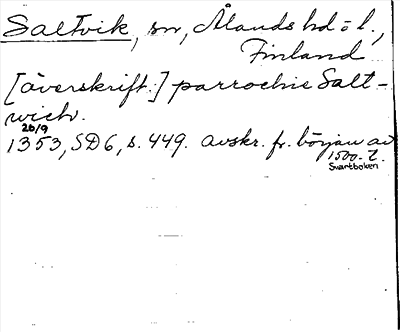 Saltvik, sn, Ålands hd o l.,
Finland
[överskrift:] parrochie Salt-
wich.
26/9
1353, SD6, s. 449. avskr. fr. början av
1500-t.
Svartboken